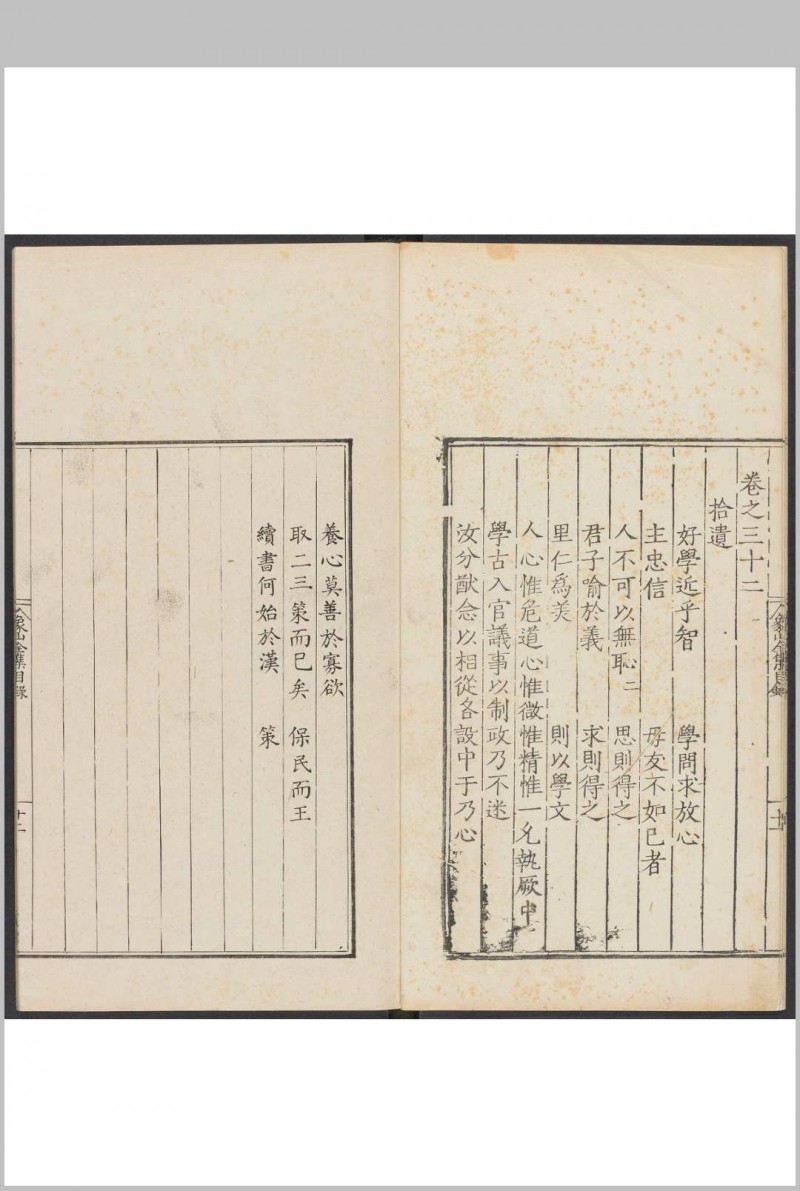 卷之三十二
拾遺
好學近乎智 學問求放心
主忠信 毋友不如已者
人不可以無恥二 思則得之
君子喻於義 求則得之
里仁爲美 則以學文
人心惟危道心惟微惟精惟一允執厥中
學古入官議事以制政乃不迷
汝分猷念以相從各設中于乃心
養心莫善於寡欲
取二三策而已矣 保民而王
續書何始於漢 策
象山全集目錄
十二